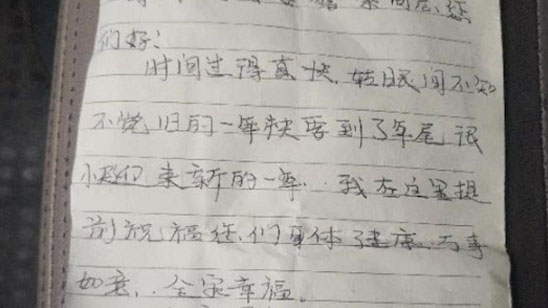 们好!
时间过得真快,转眼间不知
不觉旧的一年快要到了年尾 很
来新的一年,我在这里提
前祝福您们身体健康,万事
如意,全家幸福。